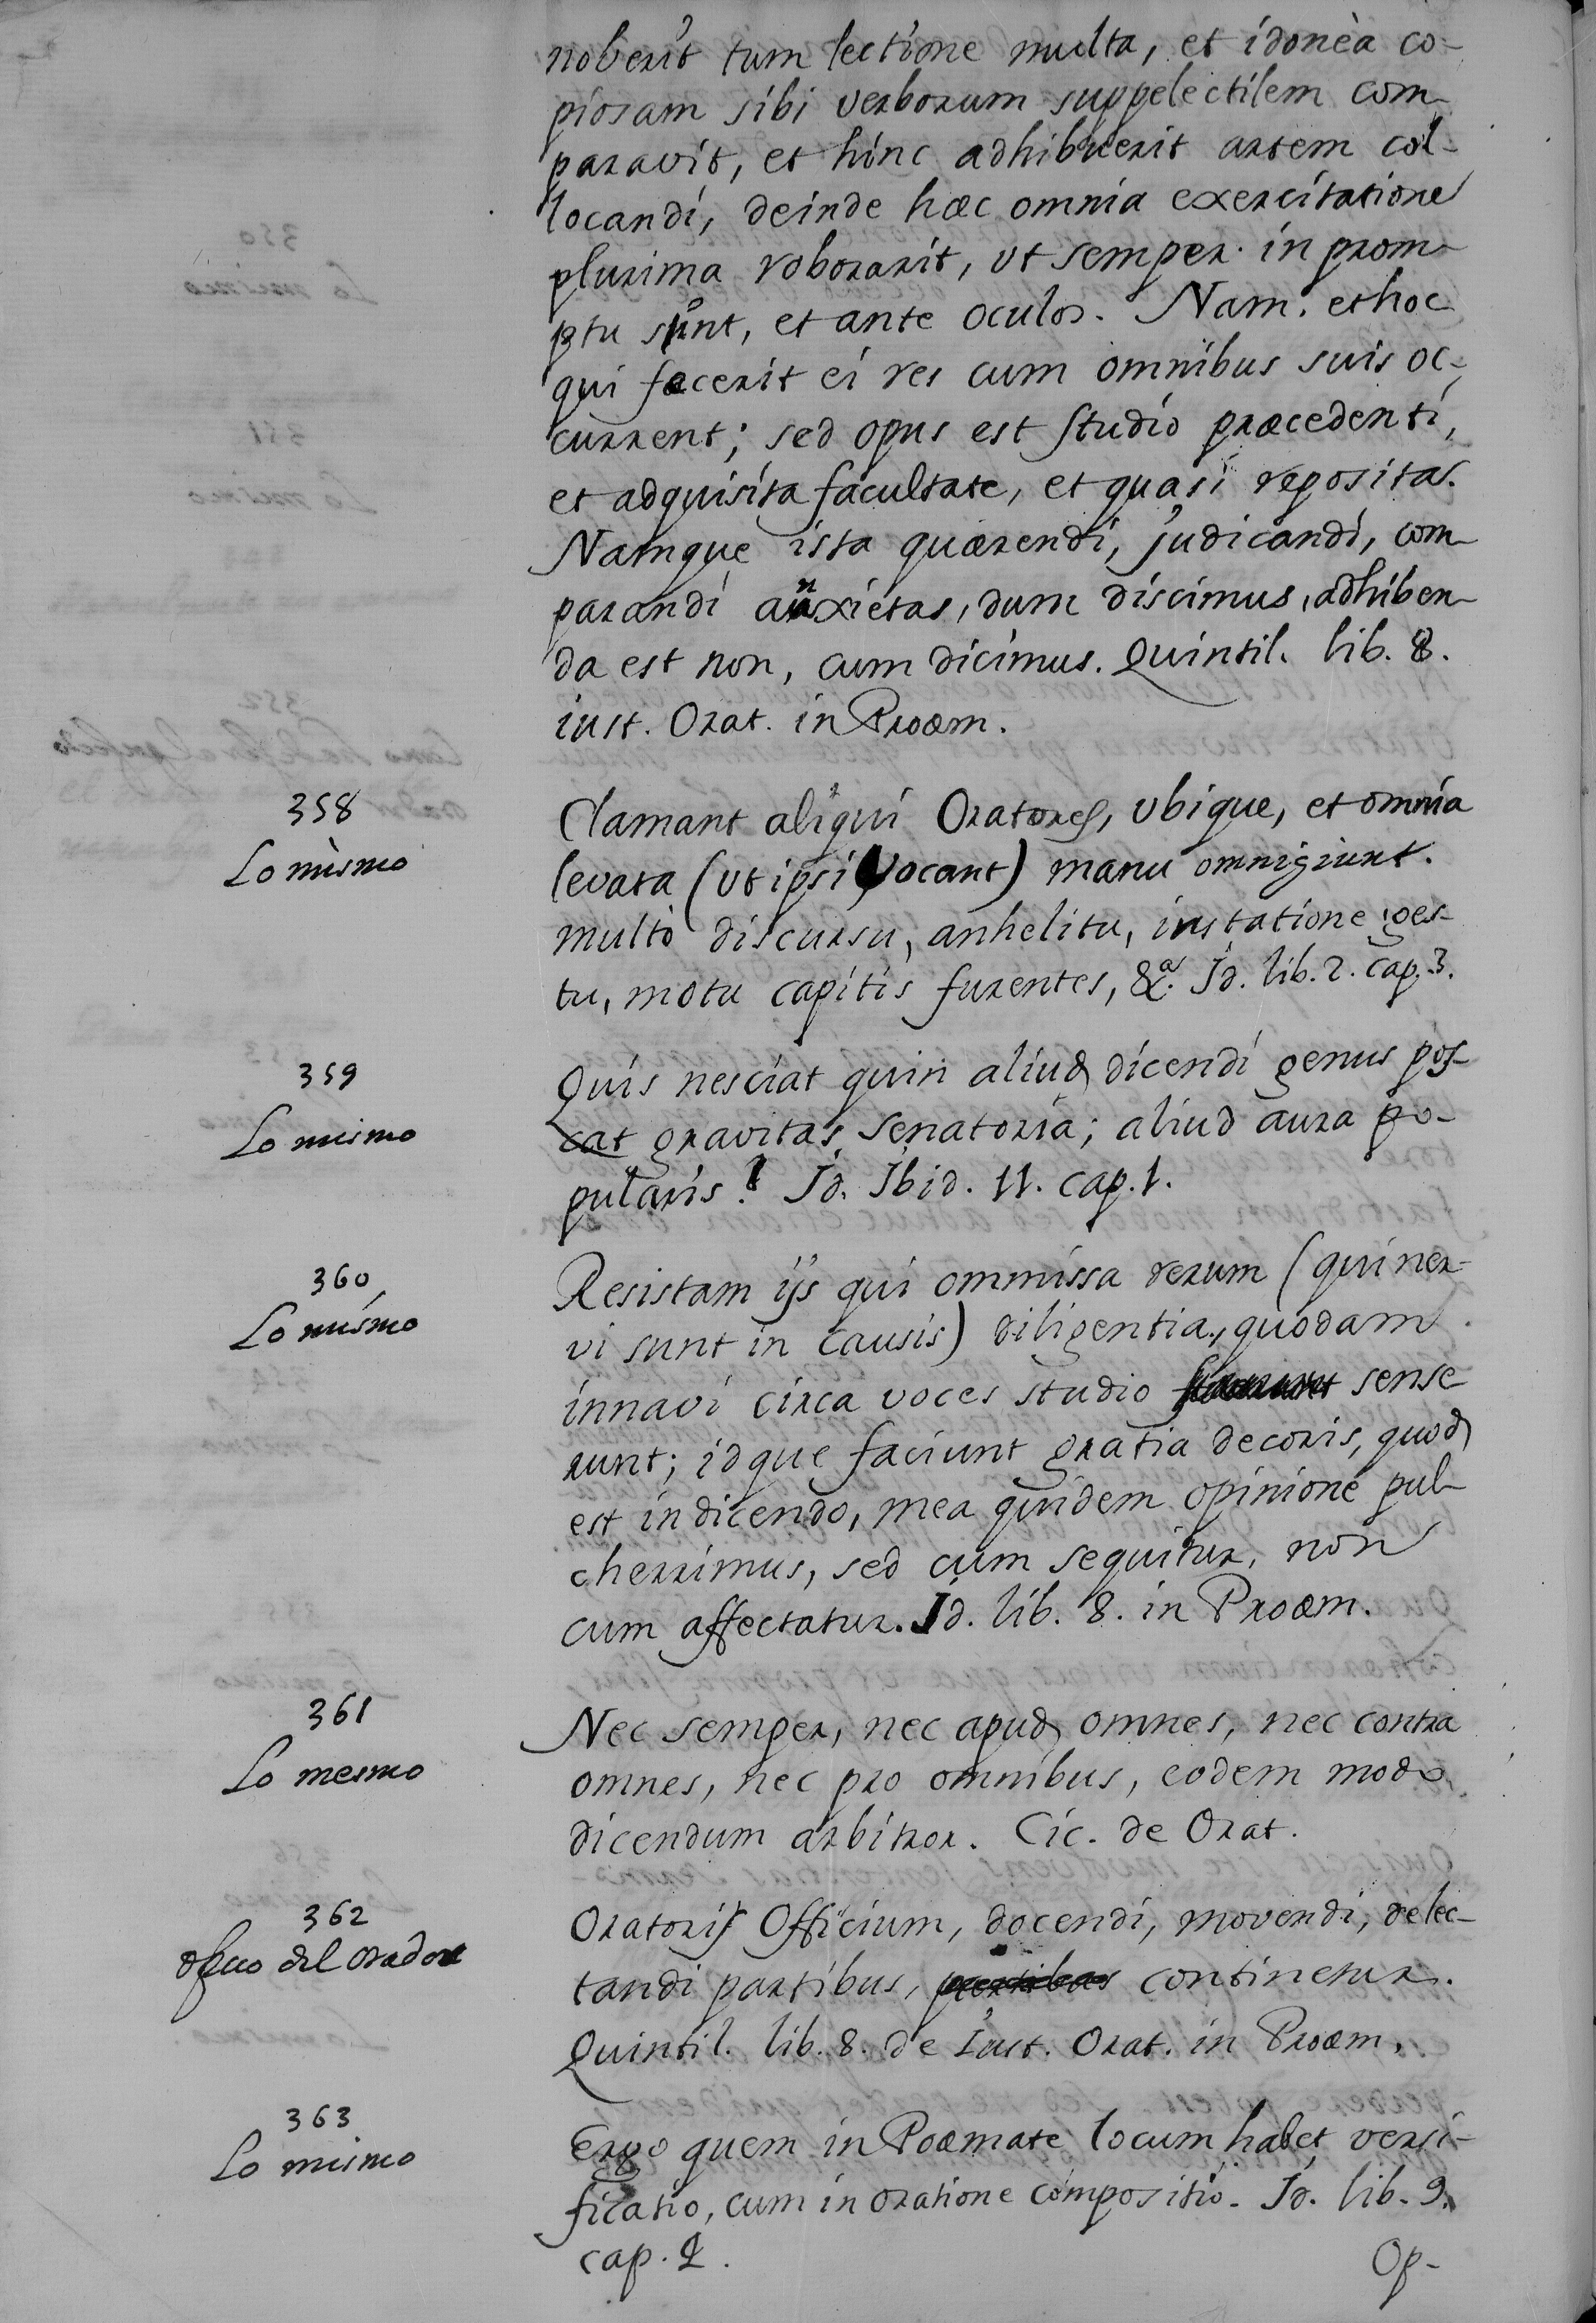 noverit tum lectione multa, et idonèa co-
piosam sibi verborum suppelectilem com-
paravit, et hinc adhibuerit artem col-
locandi, deinde hæc omnia exercitatione
plurima roborarit, ut semper in prom-
ptu sint, et ante oculos. Nam. et hoc
qui fecerit ei res cum omnibus suis oc-
current; sed opus est studio præcedenti,
et adquisita facultate, et quasi reposita.
Namque ista quærendi, judicandi, com-
parandi anxietas, dum discimus, adhiben-
da est non, cum dicimus. Quintil. lib. 8.
inst. Orat. in Proæm.
358
Lo mismo
Clamant aliqui Oratores, ubique, et omnia
levata (ut ipsi vocant) manu omnigiunt.
multò discursu, anhelitu, instatione ges-
tu, motu capitis furentes, &a. Jd. lib. 2. cap. 3.
359
Lo mismo
Quis nesciat quin aliud dicendi genus pos-
cat gravitas Senatoria; aliud aura po-
pularis? Jd. Jbid. 11. cap. 1.
360
Lo mismo
Resistam ijs qui ommissa rerum (qui ner-
vi sunt in causis) diligentia, quodam
innavi circa voces studio sense
runt; idque faciunt gratia decoris, quod
est in dicendo, mea quidem opinione pul-
cherrimus, sed cum sequitur, non
cum affectatur. Jd. lib. 8. in Proæm.
361
Lo mesmo
Nec semper, nec apud omnes, nec contra
omnes, nec pro omnibus, eodem modo
dicendum arbitror. Cic. de Orat.
362
ofiço del orador
Oratoris Officium, docendi, movendi, delec-
tandi partibus, continetur.
Quintil. lib. 8. de Inst. Orat. in Proæm.
363
Lo mismo
Ergo quem in Poæmate locum habet versi-
ficatio, cum in oratione compositio. Jd. lib. 9.
cap. 2.
Op-